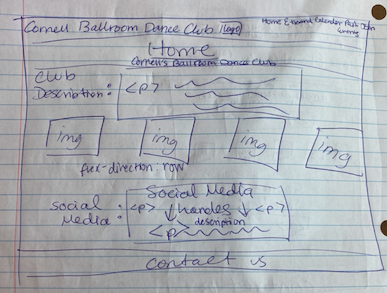 Cornell Ballroom Dance Club [Logo]
Home Calendar
Home
Cornell's Ballroom Dance Club
Club
Description: <p>
img img img img
flex-direction: row
Social Media
Social Media: <p> handles <p>
description
<p>
Contact us